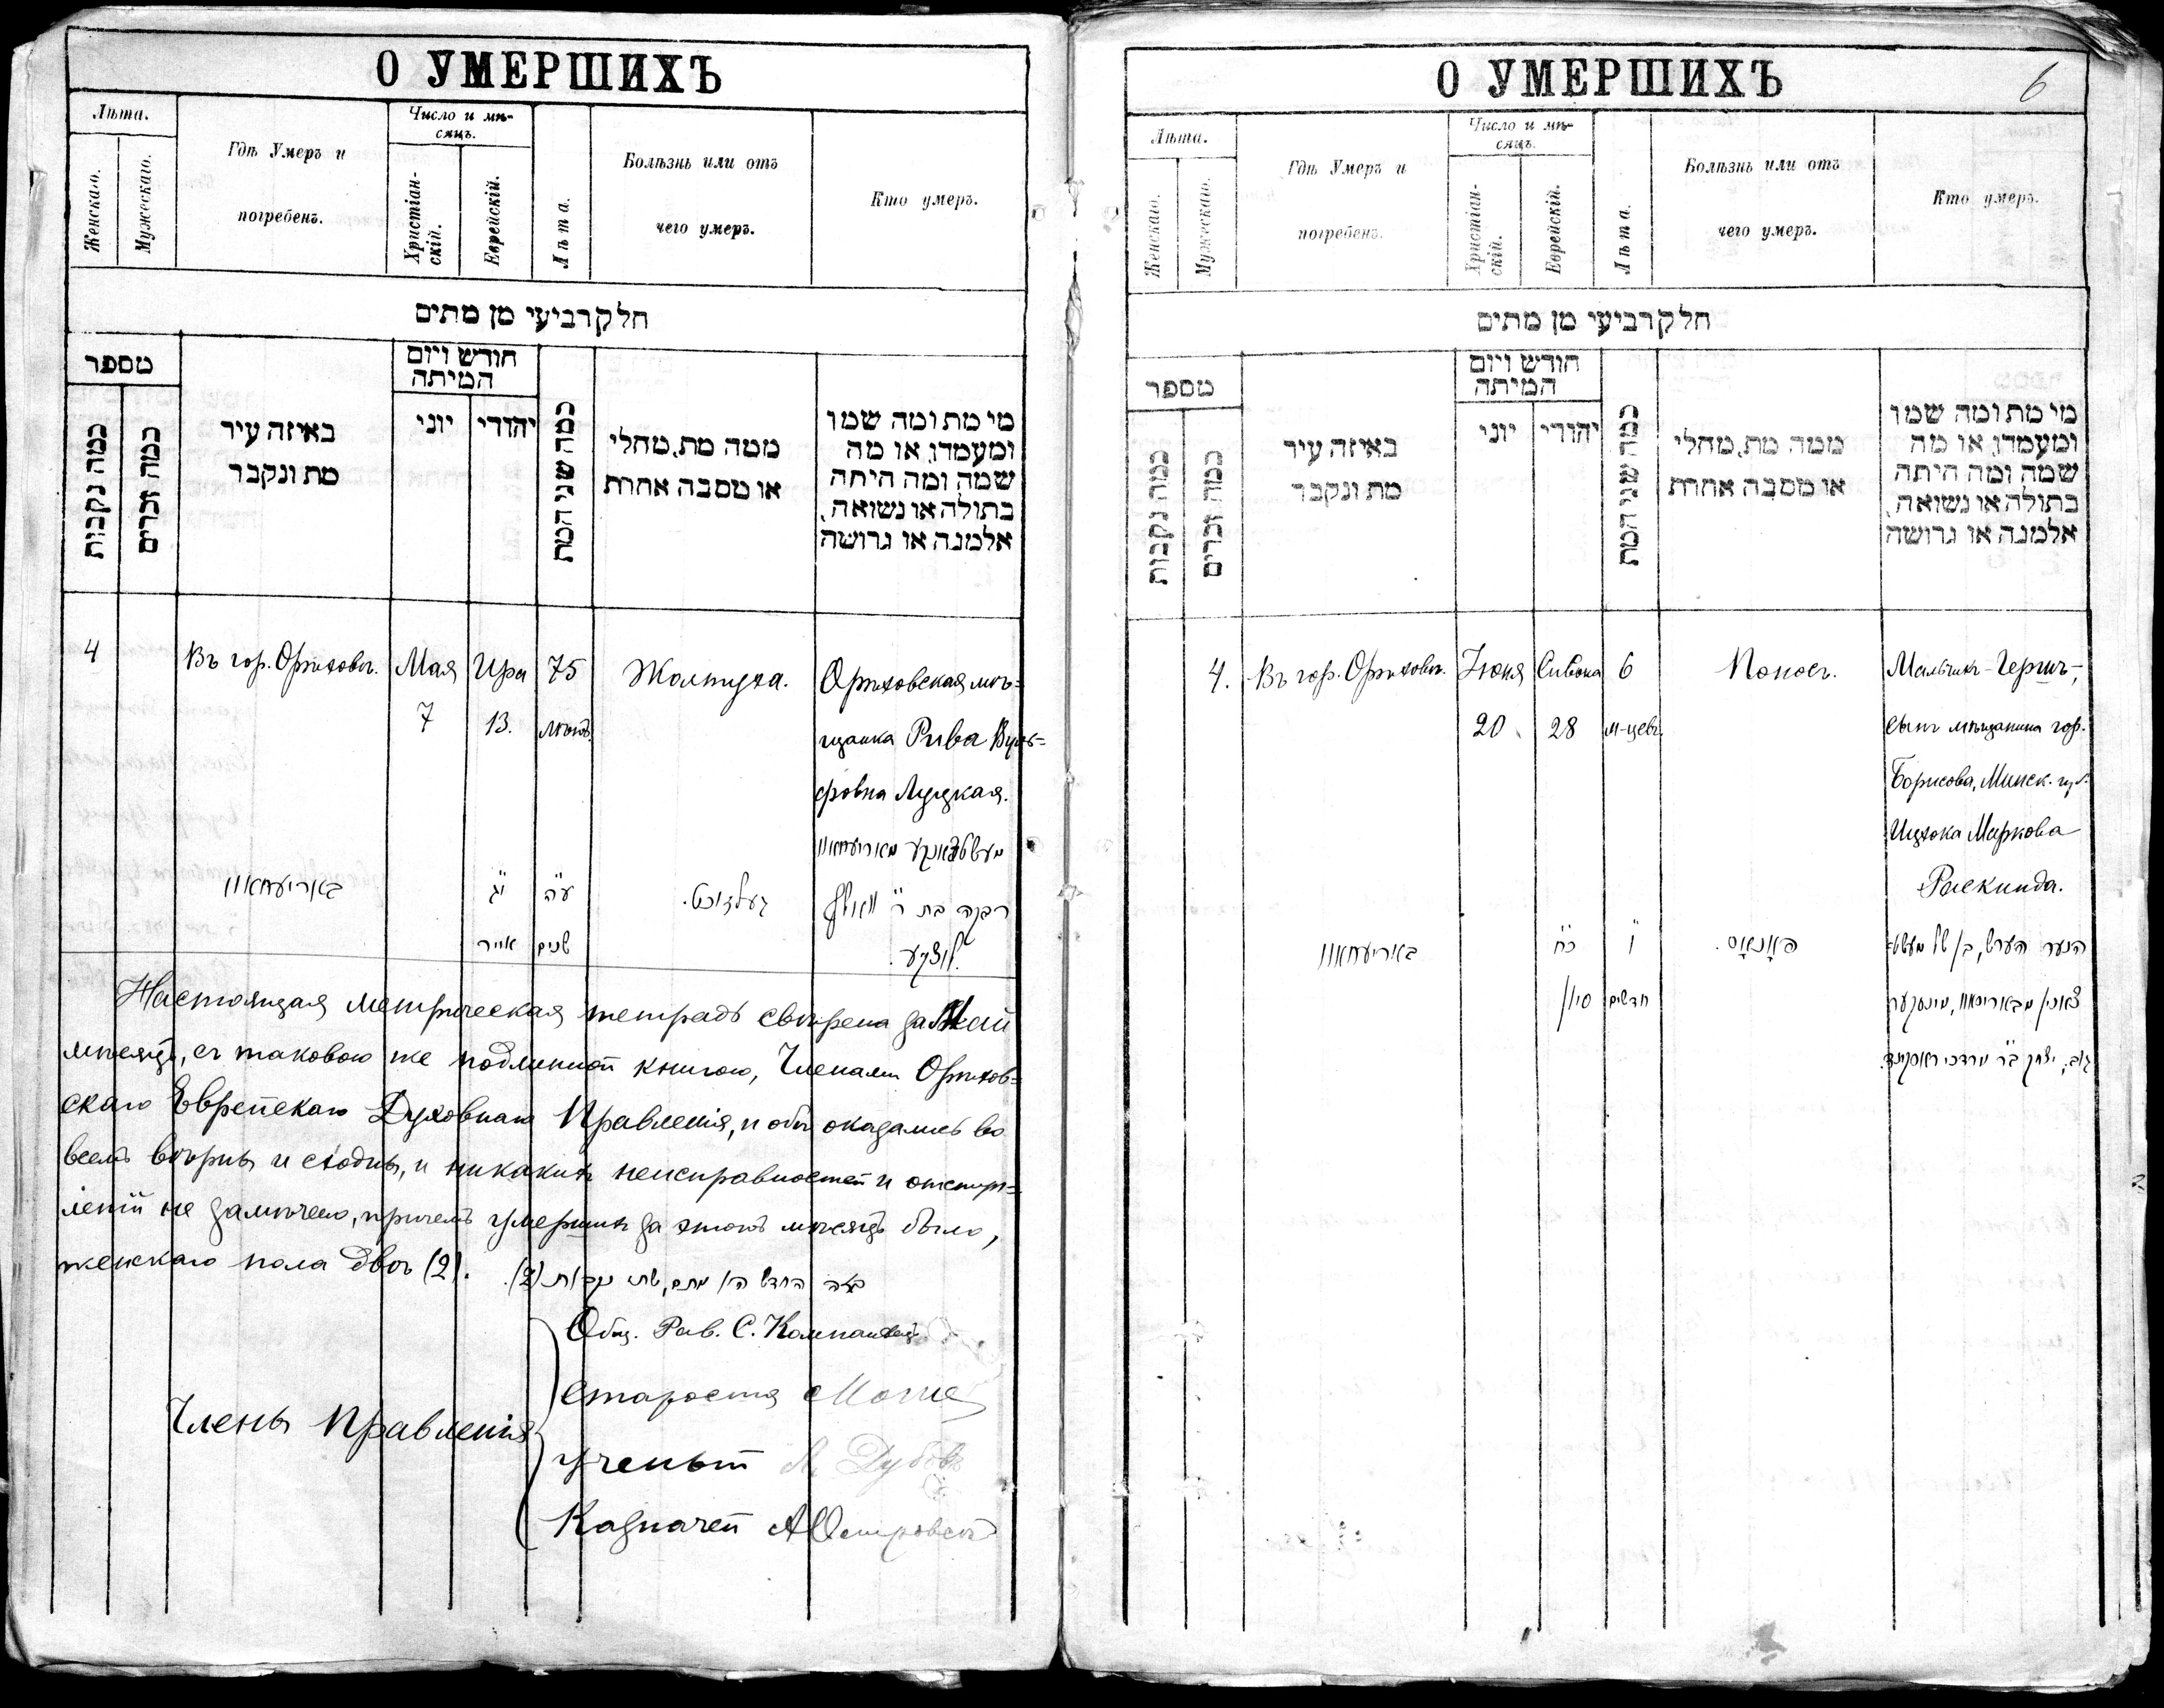 О УМЕРШИХЪ
Лѣта.
Женскаго.
Мужескаго.
Гдѣ Умеръ и
погребенъ.
Число и мѣ-
сяцъ.
Христіан-
скій.
Еврейскій.
Лѣта.
Болѣзнь или отъ
чего умеръ.
Кто умеръ.
חלק רביעי מן מתים
מספר
כמה נקבות
כמה זכרים
באיזה עיר
מת ונקבר
חודש ויום
המיתה
יוני
יהודי
כמה שני המת
ממה מת, מחלי
או מסבה אחרת
מי מת ומה שמו
ומעמדו, או מה
שמה ומה היתה
בתולה או נשואה,
אלמנה או גרושה
4
Въ гор. Орѣховѣ.
Мая
7
Ира
13.
75
лѣтъ.
Желтуха.
Орѣховская мѣ=
щанка Рива Вуль=
фовна Луцкая.
באריעחאוו
י״ג
אייר
ע״ה
שנים
געלזוכט.
מעשטשאנקע מאריעחאוו
רבקה בת ר׳ וואלף
לוצקע.
Настоящая метрическая тетрадь свѣрена за Май
мѣсяцъ, съ таковою же подлинной книгою, Членами Орѣхов=
скаго Еврейскаго Духовнаго Правленія, и обѣ оказались во
всемъ вѣрны и сходны, и никакихъ неисправностей и отступ=
леній не замѣчено, причемъ умершихъ за этотъ мѣсяцъ было,
женскаго пола двѣ (2).
בזה החדש היו מתים, שתי נקבות (2).
Члены Правленія
Общ. Рав. С. Компанеецъ
Староста
Ученый А. Дубовъ
Казначей А Островскій
6
О УМЕРШИХЪ
Лѣта.
Женскаго.
Мужескаго.
Гдѣ Умеръ и
погребенъ.
Число и мѣ-
сяцъ.
Христіан-
скій.
Еврейскій.
Лѣта.
Болѣзнь или отъ
чего умеръ.
Кто умеръ.
חלק רביעי מן מתים
מספר
כמה נקבות
כמה זכרים
באיזה עיר
מת ונקבר
חודש ויום
המיתה
יוני
יהודי
כמה שני המת
ממה מת, מחלי
או מסבה אחרת
מי מת ומה שמו
ומעמדו, או מה
שמה ומה היתה
בתולה או נשואה,
אלמנה או גרושה
4.
Въ гор. Орѣховѣ.
Іюня
20
Сивона
28
6
м-цевъ.
Поносъ.
Мальчикъ - Гершъ,-
сынъ мѣщанина гор.
Борисова, Минск. губ.
Ицхока Маркова
Раскинда.
באריעחאוו
כ״ח
סיון
ו׳
חדשים
פאָנאָס.
הנער הערש, בן של מעשט-
צאנין מבאריסאוו, מינסקער
גוב, יצחק ב״ר מרדכי ראסקינד.